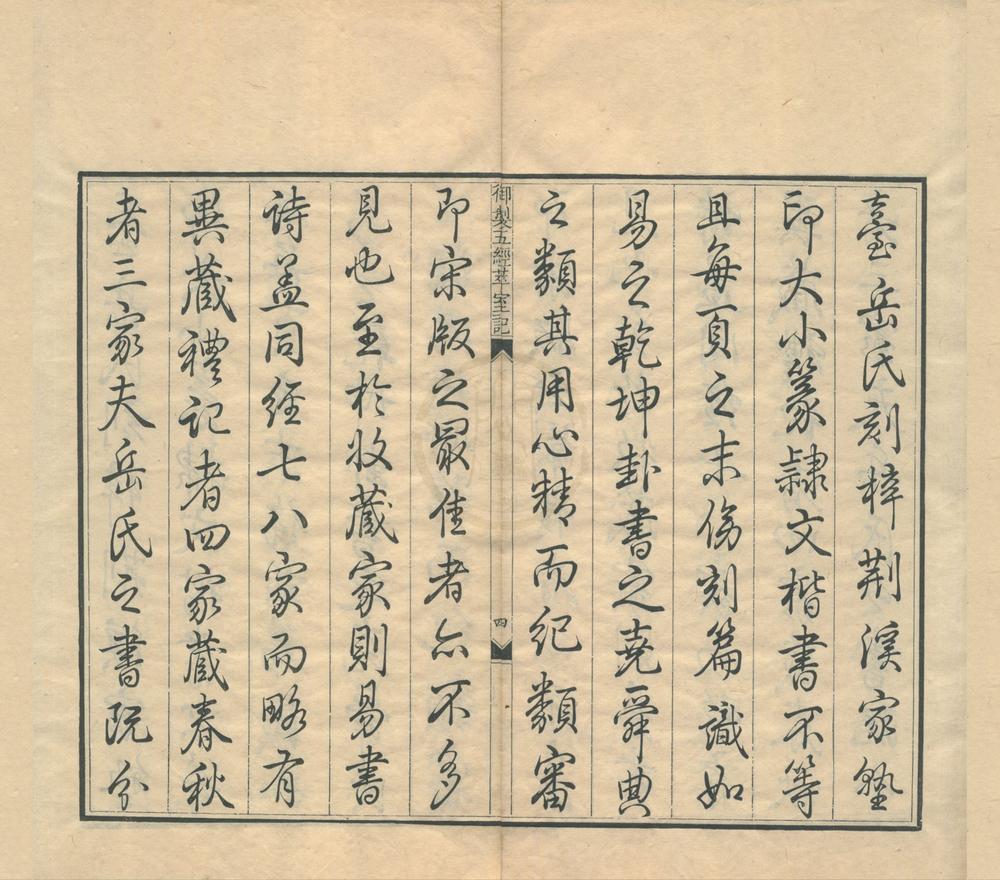 臺岳氏刻梓荆溪家塾
印大小篆隸文楷書不等
且每頁之末傍刻篇識如
易之乾坤卦書之堯舜典
之類其用心精而紀類審
御製五經萃室記
四
即宋版之最佳者亦不多
見也至於收藏家則易書
詩葢同經七八家而略有
異藏禮記者四家藏春秋
者三家夫岳氏之書既分